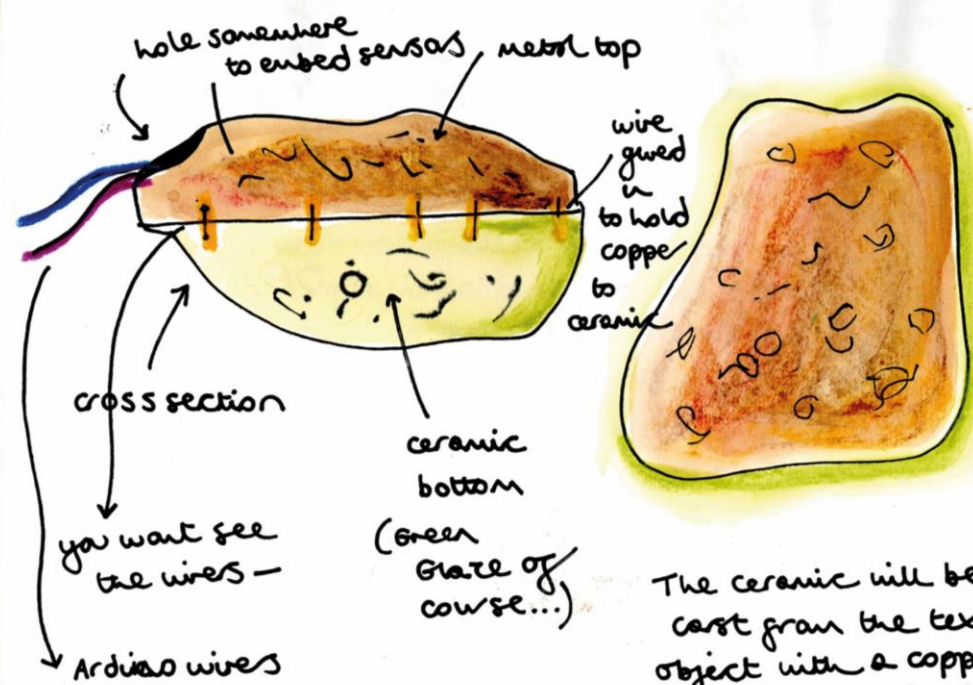 hole somewhere
to embed sensors
metal top
wire
glued
in
to hold
copper
to
ceramic
cross section
ceramic
bottom
(Green
Glaze of
course...)
you want see
the wires —
Arduino wires
The ceramic will be
cast from the tex
object with a copp